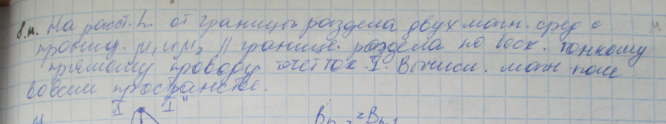 в.н. На расст. h. от границы раздела двух магн. сред с
прониц. μ₁ и μ₂ || границе раздела по беск. тонкому
прямому проводу течет ток I. Вычисл. магн. поле
во всем пространстве.
I I"
Bn₂ = Bn₁